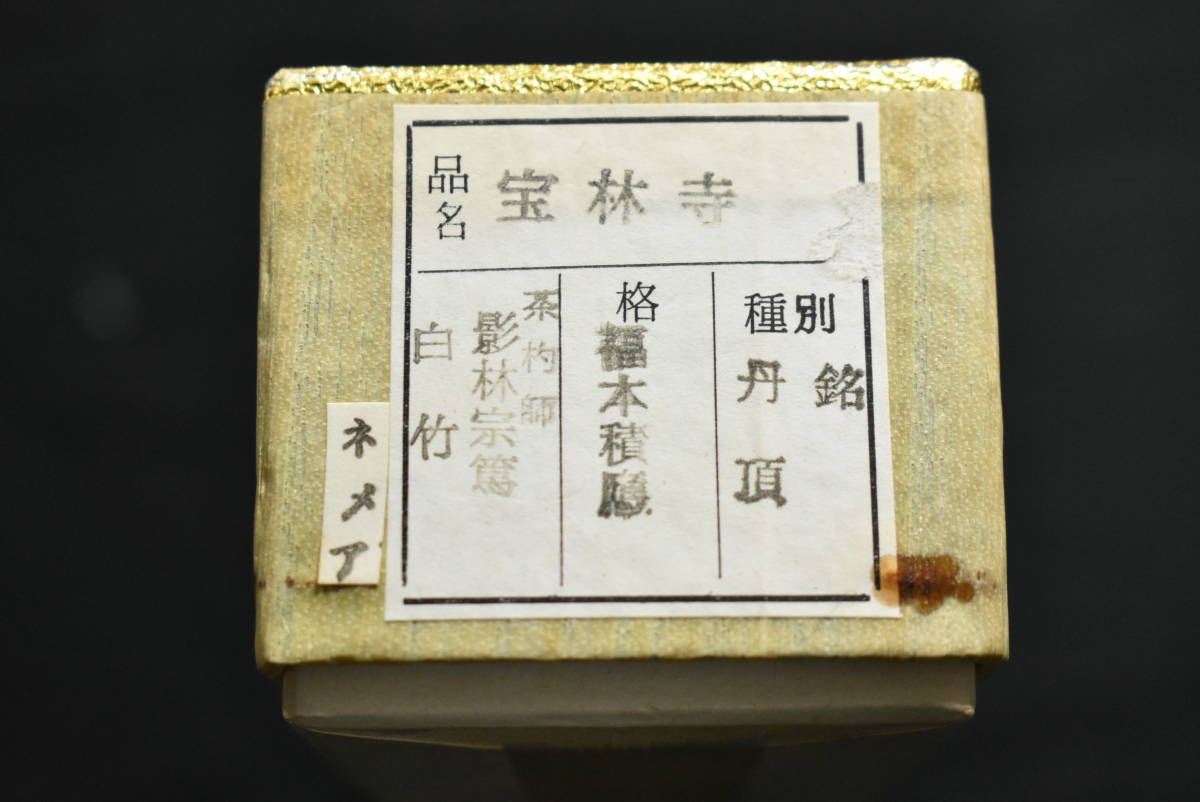 品名 宝林寺
種別
銘
丹頂
格
福本積應
茶杓師
影林宗篤
白竹
ネ
メ
ア